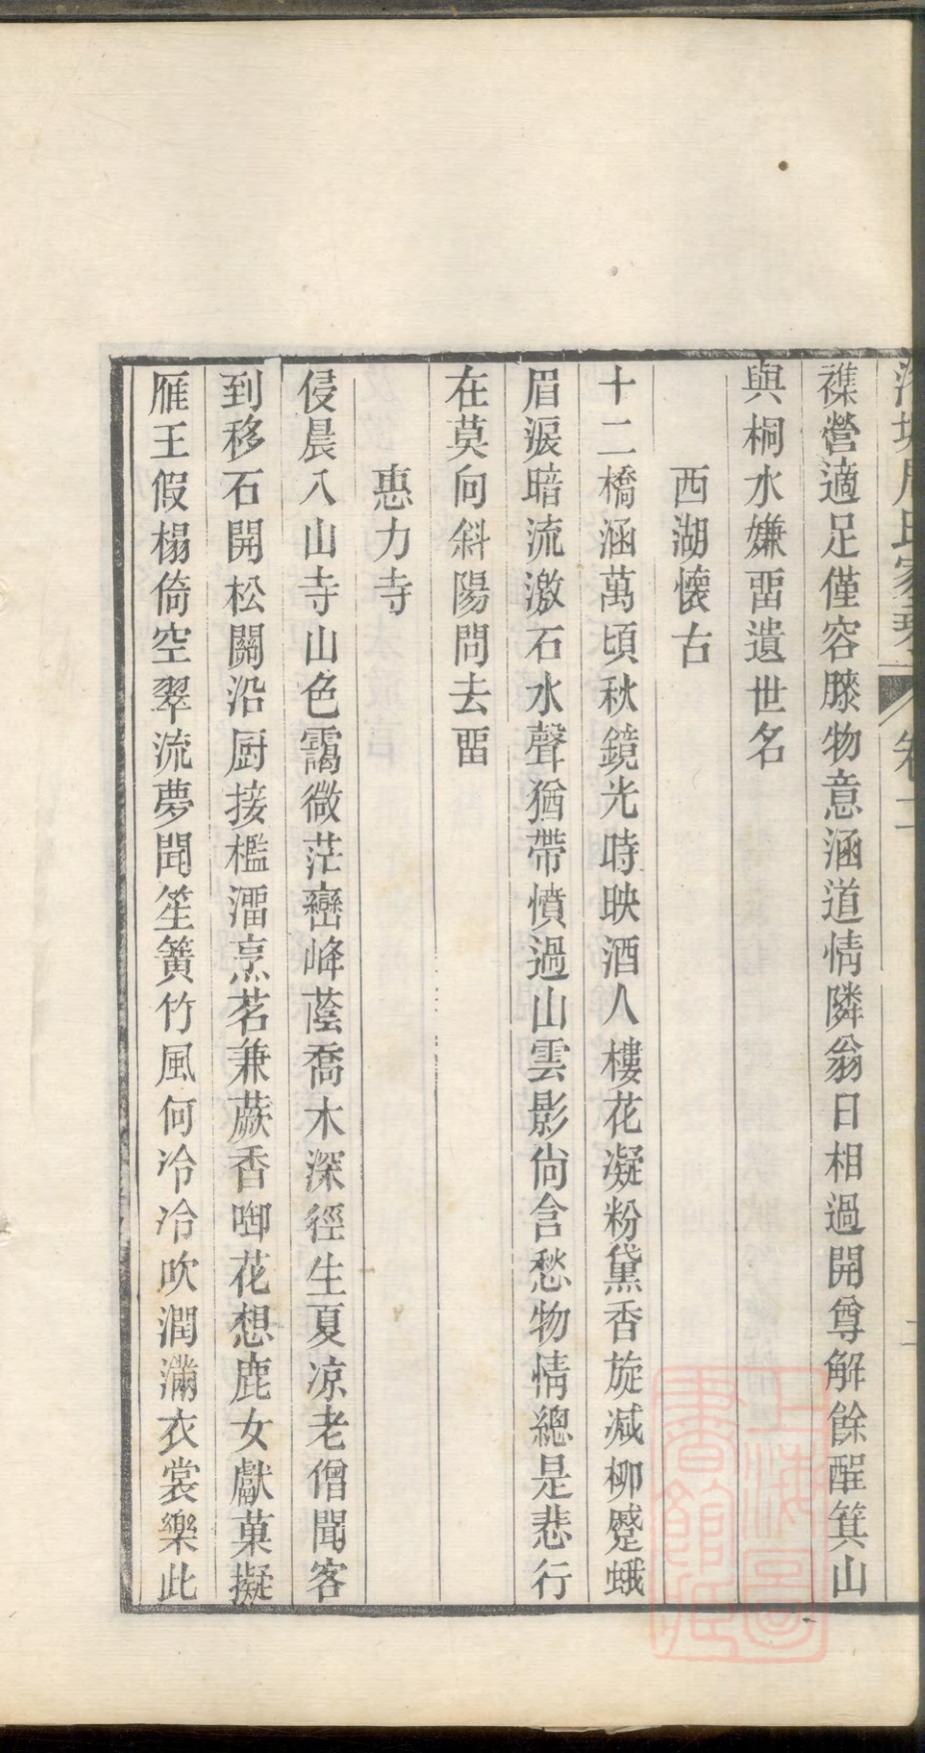 周氏家乘 卷二
襍營適足僅容膝物意涵道情隣翁日相過開尊解餘酲箕山
與桐水嫌畱遺世名
西湖懷古
十二橋涵萬頃秋鏡光時映酒人樓花凝粉黛香旋減柳蹙蛾
眉淚暗流激石水聲猶帶憤過山雲影尙含愁物情總是悲行
在莫向斜陽問去畱
惠力寺
侵晨入山寺山色靄微茫巒峰蔭喬木深徑生夏凉老僧聞客
到移石開松關沿厨接檻澑烹茗兼蕨香啣花想鹿女獻菓擬
雁王假榻倚空翠流夢聞笙簧竹風何冷冷吹潤滿衣裳樂此
二
上海圖書館藏